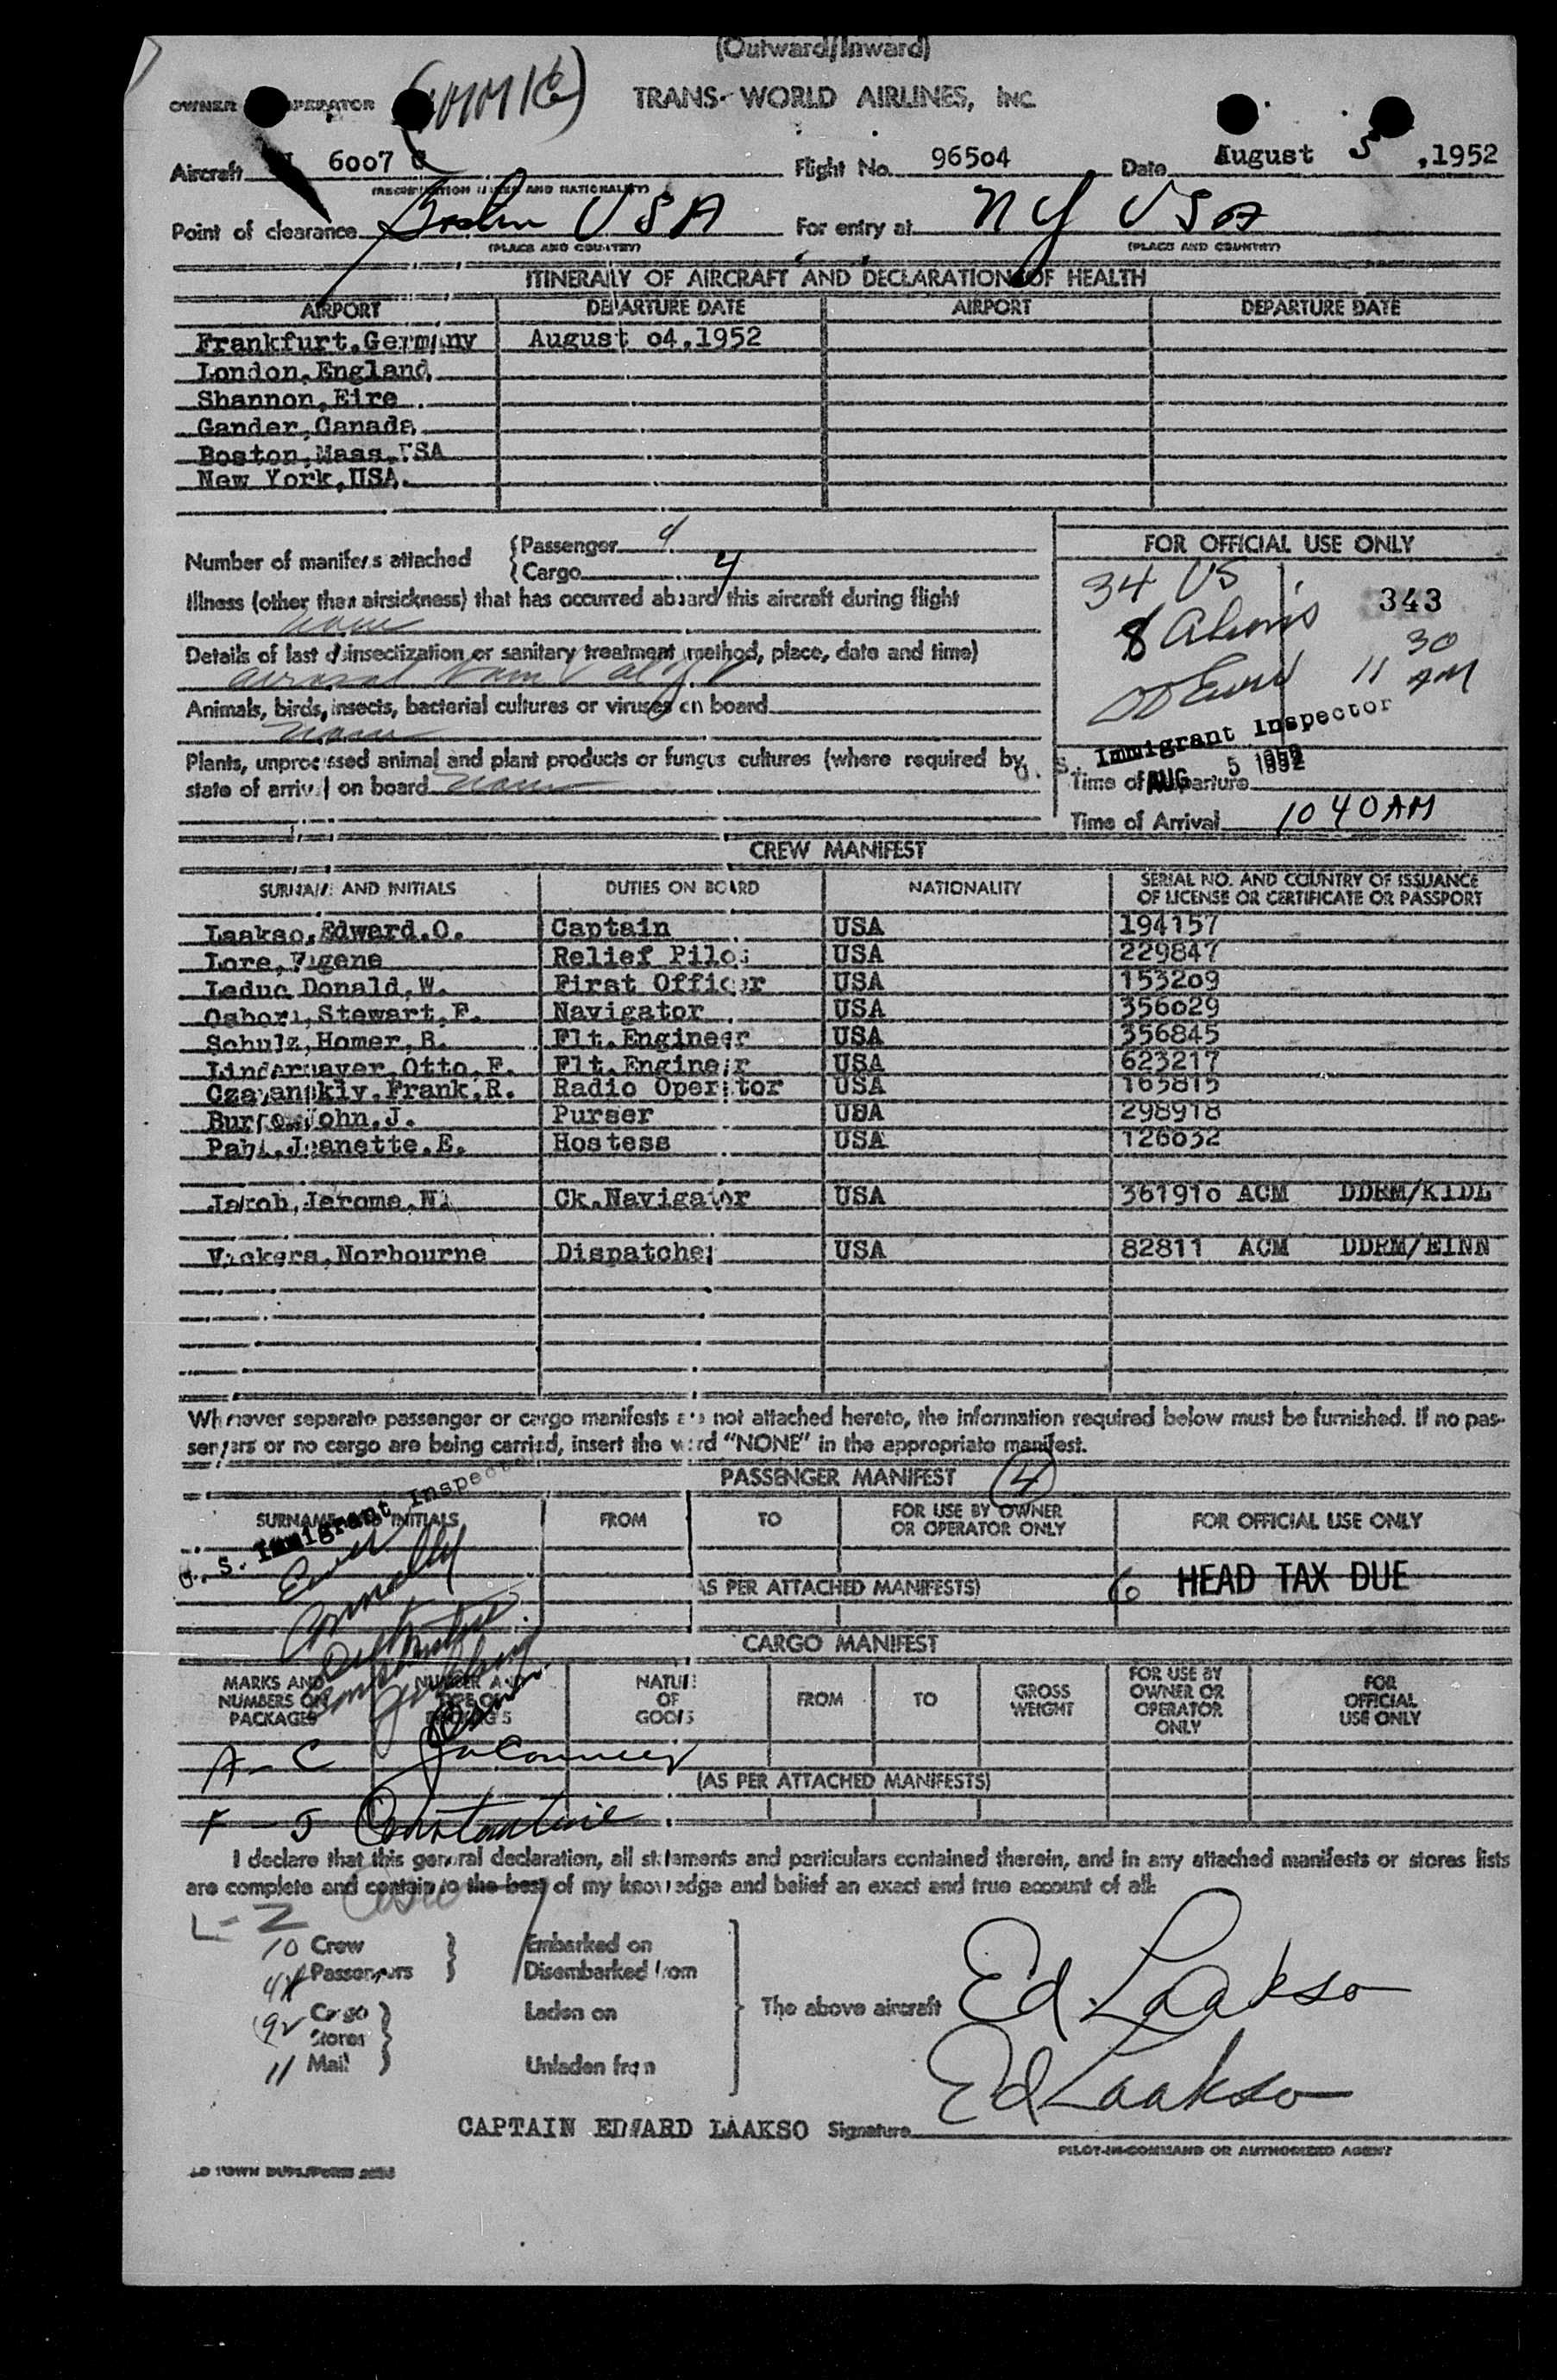 (Outward/Inward)
OWNER OPERATOR TRANS-WORLD AIRLINES, INC
Aircraft N 6007 C Flight No. 96504 Date August 5, 1952
(REGISTRATION MARKS AND NATIONALITY)
Point of clearance Boston USA For entry at NY USA
(PLACE AND COUNTRY) (PLACE AND COUNTRY)
ITINERARY OF AIRCRAFT AND DECLARATION OF HEALTH
AIRPORT DEPARTURE DATE AIRPORT DEPARTURE DATE
Frankfurt,Germany August 04,1952
London,England
Shannon,Eire
Gander,Canada
Boston,Mass,USA
New York,USA.
Number of manifests attached
Passenger 4
Cargo 4
FOR OFFICIAL USE ONLY
34 US 343
8 Aliens
11 30 AM
U. S. Immigrant Inspector
AUG 5 1952
Illness (other than airsickness) that has occurred aboard this aircraft during flight
none
Details of last disinsectization or sanitary treatment (method, place, date and time)
Animals, birds, insects, bacterial cultures or viruses on board
none
Plants, unprocessed animal and plant products or fungus cultures (where required by
state of arrival on board none
Time of Departure
Time of Arrival 10 40AM
CREW MANIFEST
SURNAME AND INITIALS DUTIES ON BOARD NATIONALITY SERIAL NO. AND COUNTRY OF ISSUANCE
OF LICENSE OR CERTIFICATE OR PASSPORT
Laakso,Edward.O. Captain USA 194157
Lore,Eugene Relief Pilot USA 229847
Leduc Donald,W. First Officer USA 153209
Osborn,Stewart,F. Navigator USA 356029
Schulz,Homer,R. Flt.Engineer USA 356845
Otto,F. Flt.Engineer USA 623217
Frank.R. Radio Operator USA 165815
John.J. Purser USA 298918
Jeanette.E. Hostess USA 126632
Jakob,Jerome.W. Ck.Navigator USA 361910 ACM DDRM/KIDL
Vickers,Norbourne Dispatcher USA 82811 ACM DDRM/EINN
Whenever separate passenger or cargo manifests are not attached hereto, the information required below must be furnished. If no pas-
sengers or no cargo are being carried, insert the word "NONE" in the appropriate manifest.
PASSENGER MANIFEST (4)
SURNAME AND INITIALS FROM TO FOR USE BY OWNER
OR OPERATOR ONLY FOR OFFICIAL USE ONLY
U. S. Immigrant Inspector
(AS PER ATTACHED MANIFESTS) 6 HEAD TAX DUE
Connolly
CARGO MANIFEST
MARKS AND
NUMBERS ON
PACKAGES
NUMBER AND
TYPE OF
PACKAGES
NATURE
OF
GOODS
FROM TO GROSS
WEIGHT
FOR USE BY
OWNER OR
OPERATOR
ONLY
FOR
OFFICIAL
USE ONLY
A-C
(AS PER ATTACHED MANIFESTS)
F-J Constantine
I declare that this general declaration, all statements and particulars contained therein, and in any attached manifests or stores lists
are complete and contain to the best of my knowledge and belief an exact and true account of all:
L-Z
10 Crew Embarked on
Passengers Disembarked from
Cargo Laden on The above aircraft Ed Laakso
Stores
11 Mail Unladen from
Ed Laakso
CAPTAIN EDWARD LAAKSO Signature
PILOT-IN-COMMAND OR AUTHORIZED AGENT